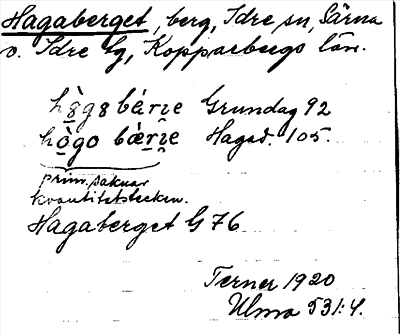 Hagaberget, berg, Idre sn, Särna
o. Idre tg, Kopparbergs län.
Grundag 92
Hagad. 105.
prim. saknar
kvantitetstecken.
Hagaberget G 76
Terner 1920
Ulma 531:4.